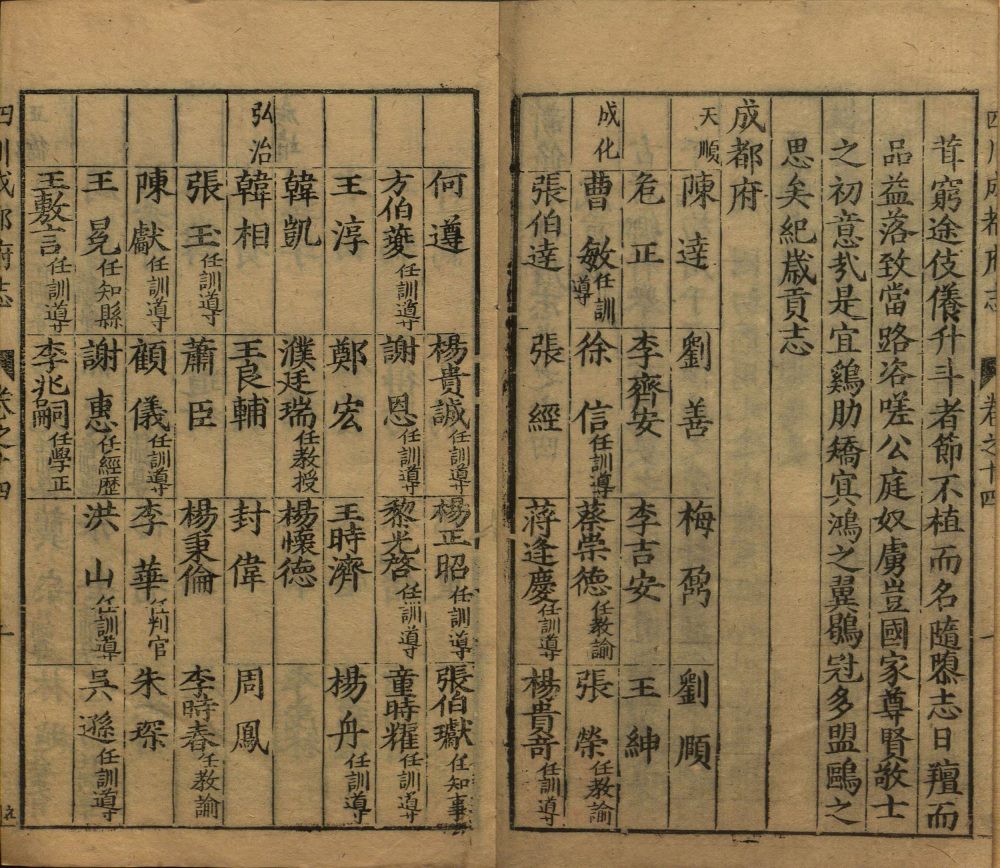 茸窮途伎儀升斗者節不植而名隨隳志日羶而
品益落致當路咨嗟公庭奴虜豈國家尊賢敬士
之初意㢤是宜鷄肋矯㝠鴻之翼鶡冠多盟鷗之
思矣紀歲貢志
成都府
天順 陳逵 劉善 梅鼐 劉順
危正 李齊安 李吉安 王紳
成化 曹敏任訓導 徐信任訓導 蔡崇德任教諭 張榮任教諭
張伯逵 張經 蔣逢慶任訓導 楊貴奇任訓導
何遵 楊貴誠任訓導 楊正昭任訓導 張伯瓛任知事
方伯夔任訓導 謝恩任訓導 黎光啓任訓導 童時耀任訓導
王淳 鄭宏 王時濟 楊舟任訓導
韓凱 濮廷瑞任教授 楊懷德
弘治 韓相 王良輔 封偉 周鳳
張玉任訓導 蕭臣 楊秉倫 李時春任教諭
陳獻任訓導 顧儀任訓導 李華任判官 朱琛
王冕任知縣 謝惠任經歷 洪山任訓導 吳遜任訓導
王敷言 李兆嗣任學正
四川成都府志 卷之十四